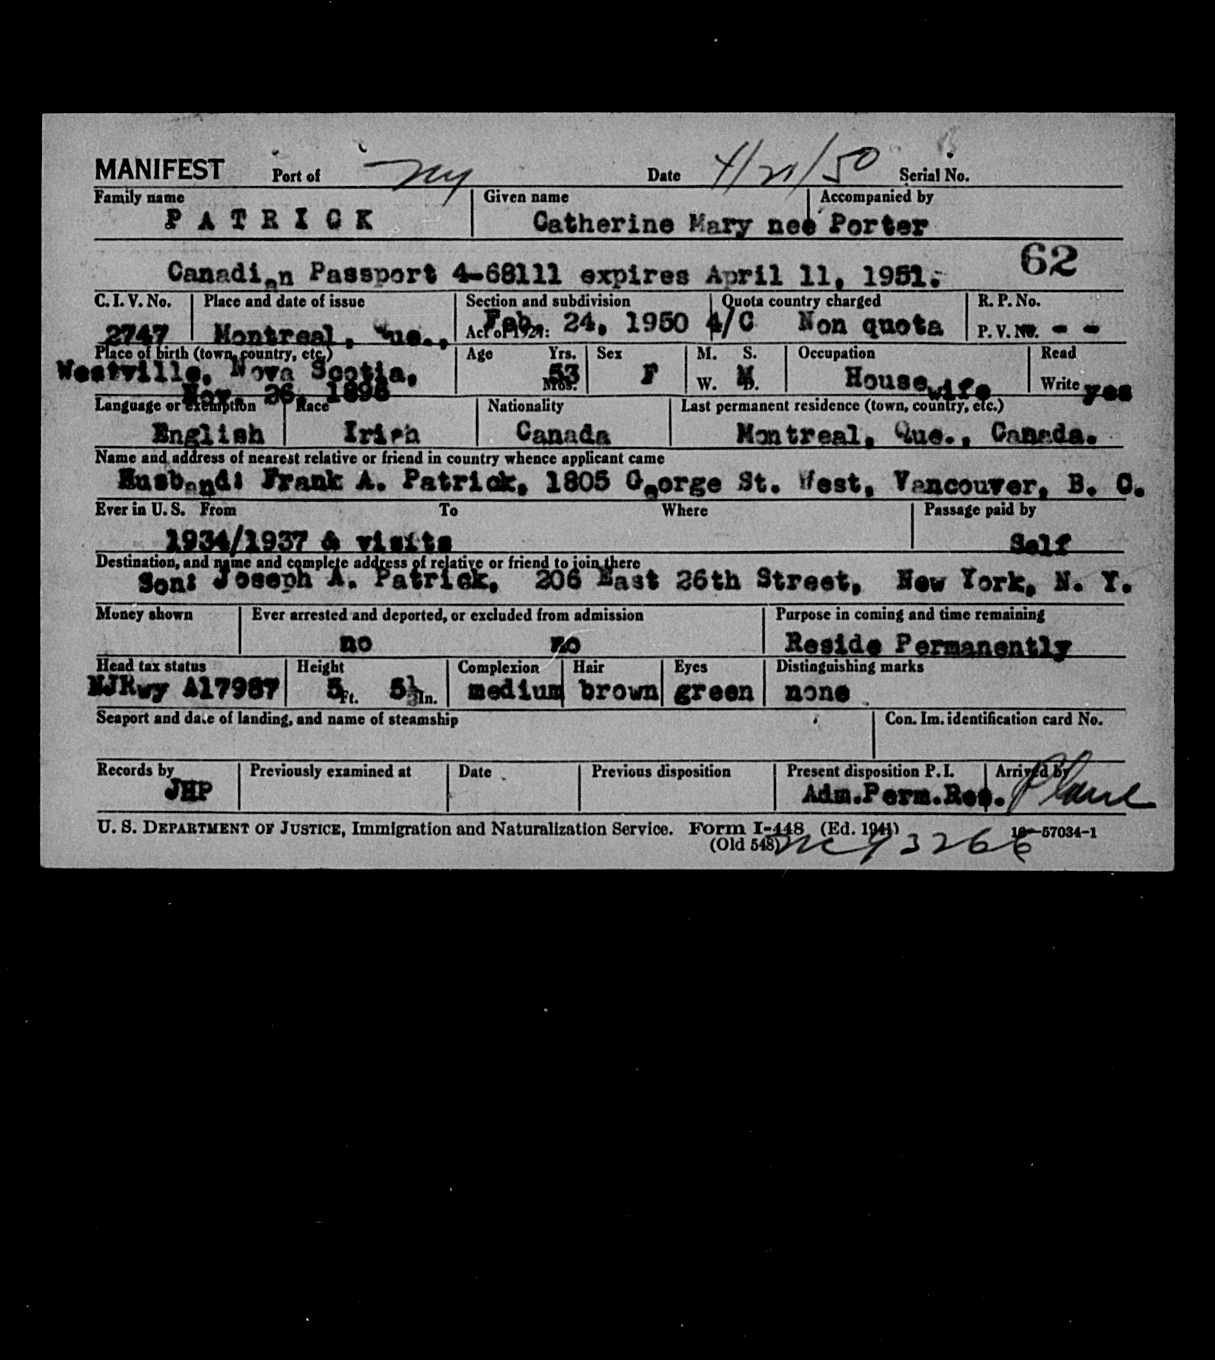 MANIFEST Port of NY Date 4/21/50 Serial No.
Family name Given name Accompanied by
PATRICK Catherine Mary nee Porter
62
Canadian Passport 4-68111 expires April 11, 1951.
C. I. V. No. Place and date of issue Section and subdivision Quota country charged R. P. No.
2747 Montreal, Que., Feb. 24, 1950 4/C Non quota
Act of 1924: P. V. No. - -
Place of birth (town, country, etc.) Age Yrs. Sex M. S. Occupation Read
Westville, Nova Scotia, 53 F M Housewife
Mos. W. D. Write yes
Nov. 26, 1896
Language or exemption Race Nationality Last permanent residence (town, country, etc.)
English Irish Canada Montreal, Que., Canada.
Name and address of nearest relative or friend in country whence applicant came
Husband: Frank A. Patrick, 1805 George St. West, Vancouver, B. C.
Ever in U. S. From To Where Passage paid by
1934/1937 & visits Self
Destination, and name and complete address of relative or friend to join there
Son: Joseph A. Patrick, 206 East 26th Street, New York, N. Y.
Money shown Ever arrested and deported, or excluded from admission Purpose in coming and time remaining
no no Reside Permanently
Head tax status Height Complexion Hair Eyes Distinguishing marks
A17987 5 Ft. 5½ In. medium brown green none
Seaport and date of landing, and name of steamship Con. Im. identification card No.
Records by Previously examined at Date Previous disposition Present disposition P. I. Arrived by
JHP Adm.Perm.Res. Plane
U. S. DEPARTMENT OF JUSTICE, Immigration and Naturalization Service. Form I-448 (Ed. 1941) 16—57034-1
(Old 548) 93266